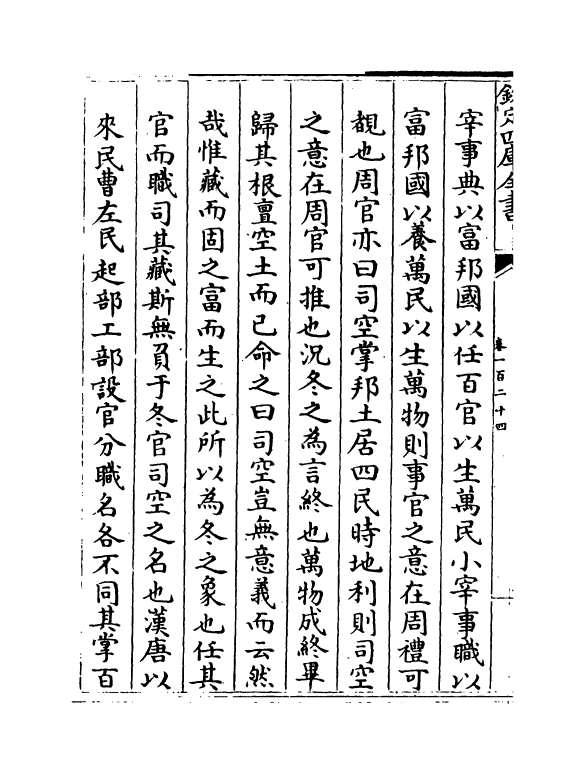 欽定四庫全書
卷一百二十四
宰事典以富邦國以任百官以生萬民小宰事職以
富邦國以養萬民以生萬物則事官之意在周禮可
覩也周官亦曰司空掌邦土居四民時地利則司空
之意在周官可推也況冬之為言終也萬物成終畢
歸其根亶空土而已命之曰司空豈無意義而云然
哉惟藏而固之富而生之此所以為冬之象也任其
官而職司其藏斯無負于冬官司空之名也漢唐以
來民曹左民起部工部設官分職名各不同其掌百